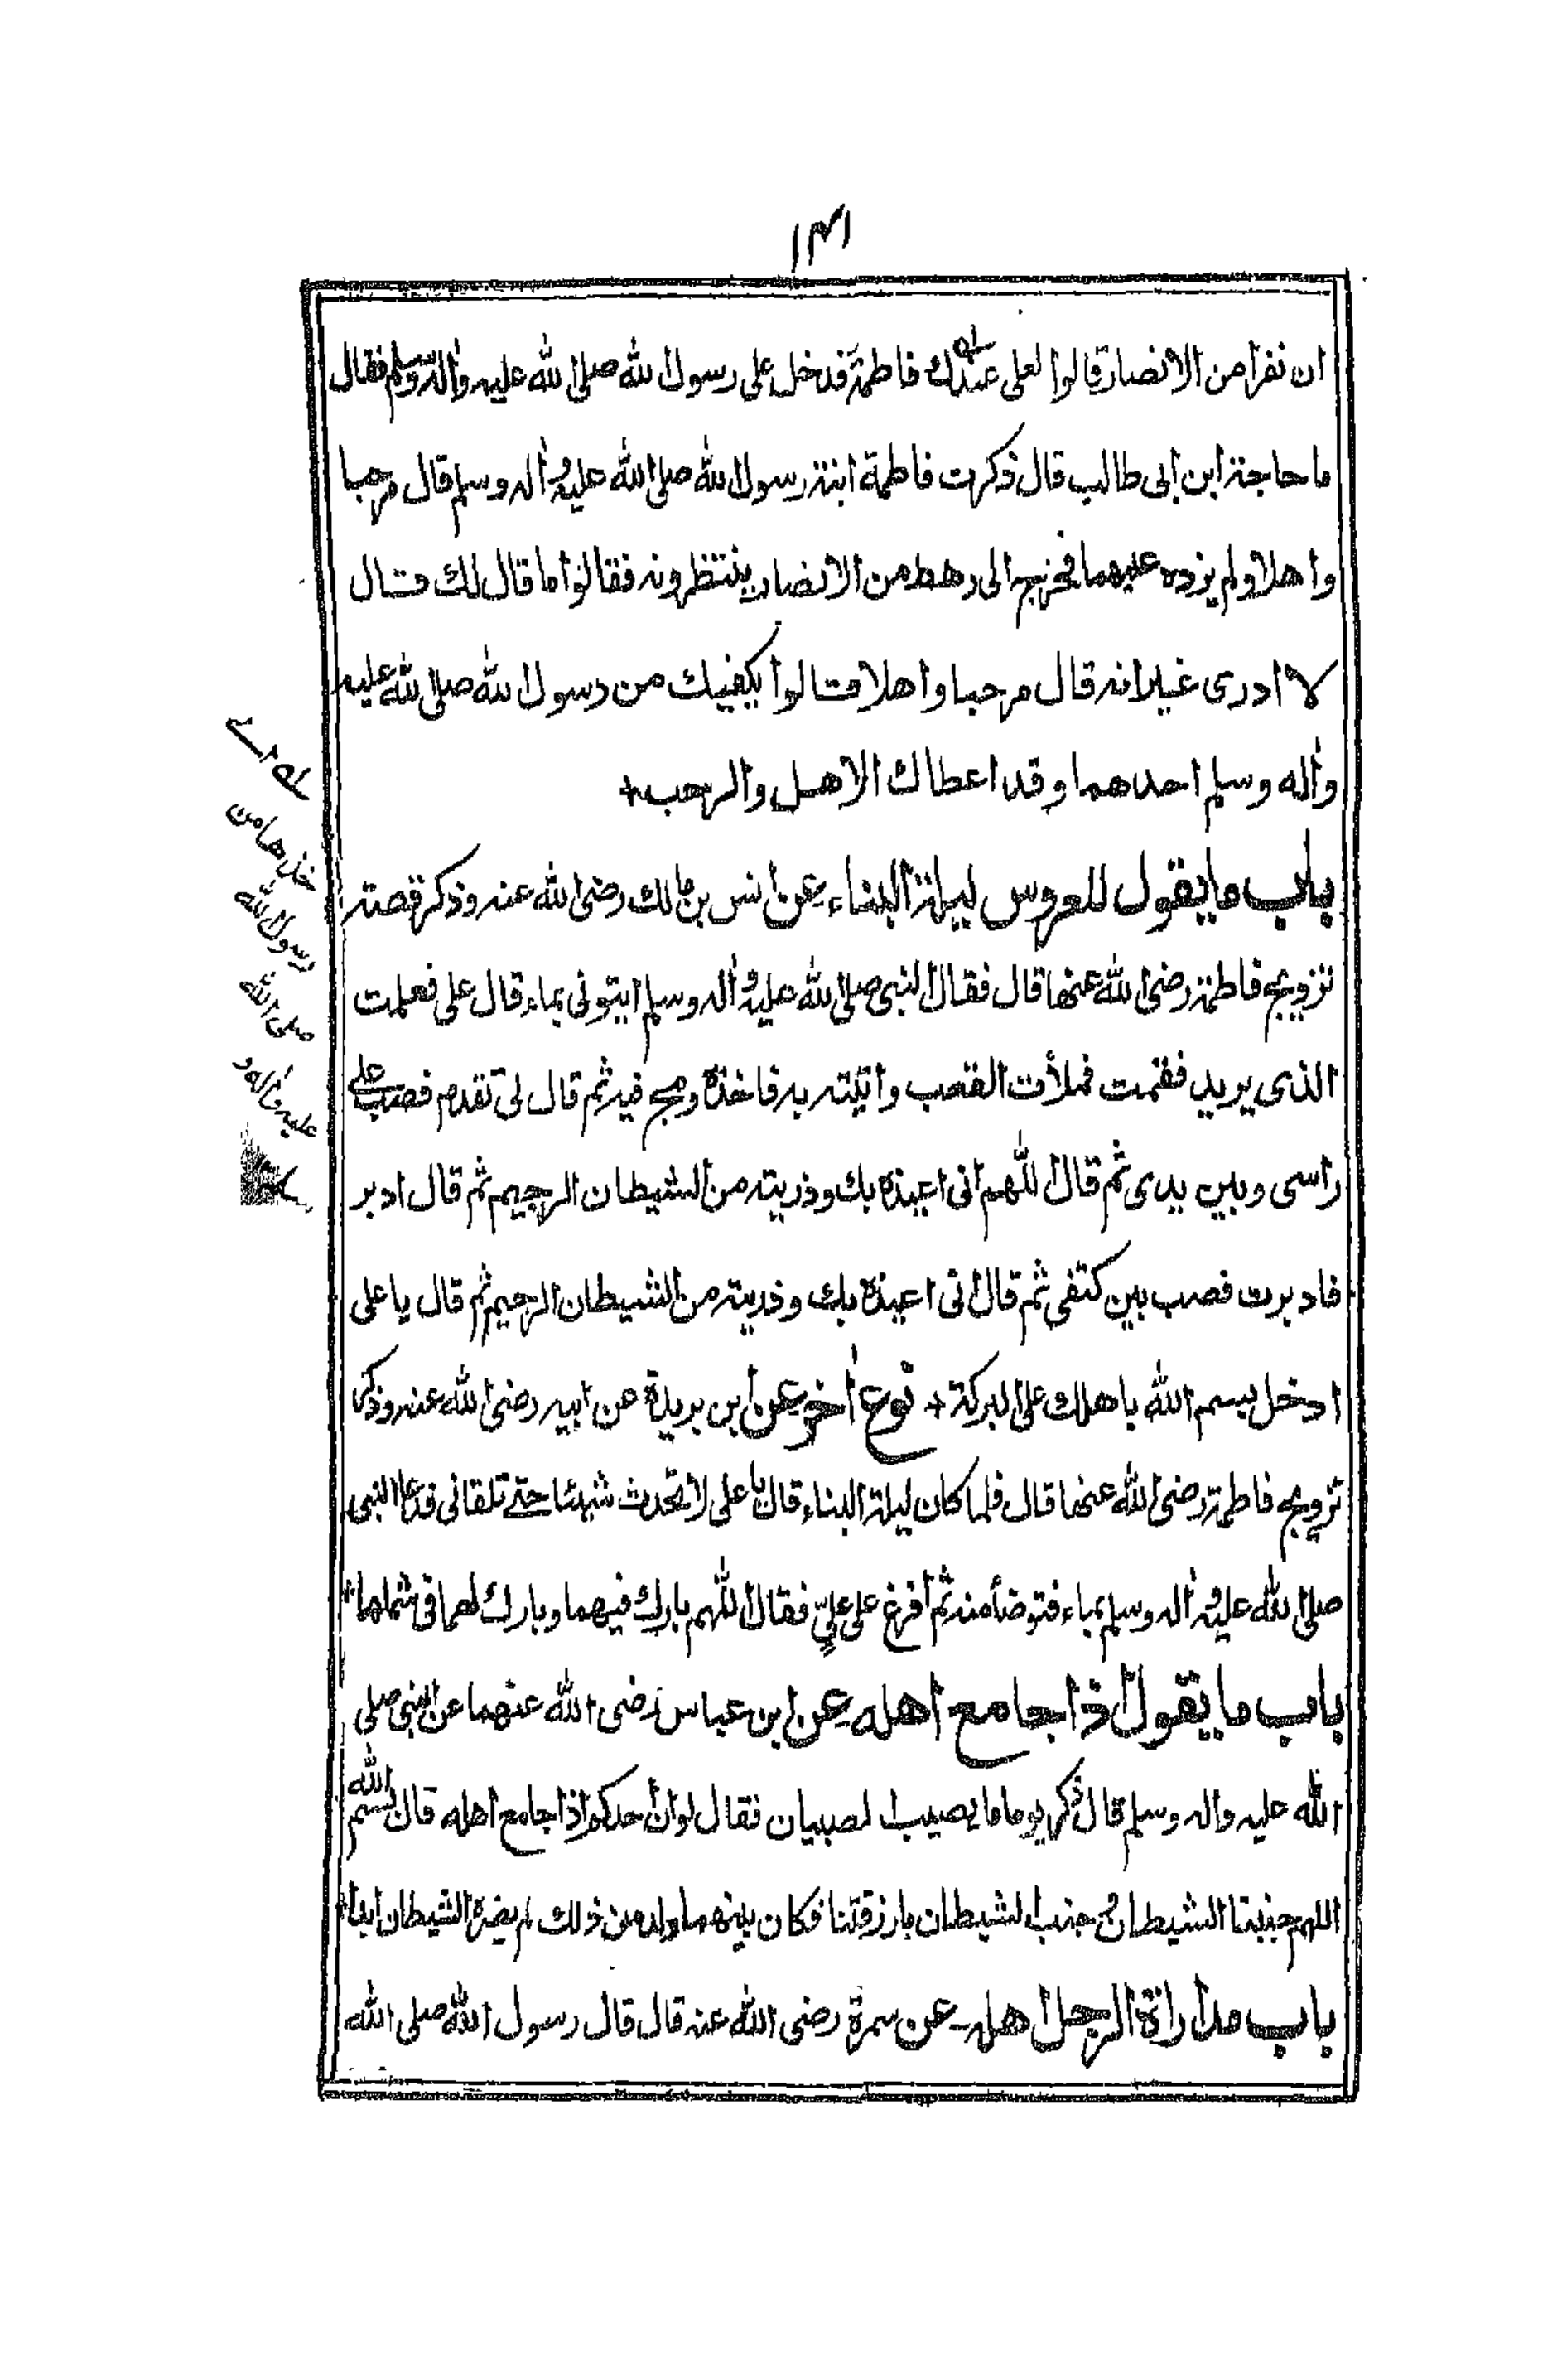 ١٣١
ان نفرا من الانصار قالوا لعلى عندك فاطمة فدخل على رسول الله صلى الله عليه واٰله وسلم فقال
ما حاجة ابن ابى طالب قال ذكرت فاطمة ابنة رسول الله صلى الله عليه واٰله وسلم قال مرحبا
واهلا ولم يزده عليهما فخرج الى رهط من الانصار ينتظرونه فقالوا ما قال لك قال
لا ادرى غير انه قال مرحبا واهلا قالوا يكفيك من رسول الله صلى الله عليه
واٰله وسلم احدهما وقد اعطاك الاهل والرحب+
باب ما يقول للعروس ليلة البناء عن انس بن مالك رضى الله عنه وذكر قصته
تزويج فاطمة رضى الله عنها قال فقال النبى صلى الله عليه واٰله وسلم ايتونى بماء قال على فعلمت
الذى يريد فقمت فملأت القعب واتيته به فاخذه ومج فيه ثم قال لى تقدم فصب على
راسى وبين يدى ثم قال اللهم انى اعيذه بك وذريته من الشيطان الرجيم ثم قال ادبر
فادبرت فصب بين كتفى ثم قال انى اعيذه بك وذريته من الشيطان الرجيم ثم قال يا على
ادخل بسم الله باهلك على البركة + نوع اٰخر عن ابن بريدة عن ابيه رضى الله عنه وذكر
تزويج فاطمة رضى الله عنها قال فلما كان ليلة البناء قال يا على لا تحدث شيئا حتے تلقانى فدعا النبى
صلى الله عليه واٰله وسلم بماء فتوضأ منه ثم أفرغ على علىٍّ فقال اللهم بارك فيهما وبارك لهما فى شملهما+
باب ما يقول اذا جامع اهله عن ابن عباس رضى الله عنهما عن النبى صلى
الله عليه واله وسلم قال ذكر يوما ما يصيب الصبيان فقال لو ان احدكم اذا جامع اهله قال بسم الله
اللهم جنبنا الشيطان و جنب الشيطان ما رزقتنا فكان بينهما ولد من ذلك لم يضره الشيطان ابدا+
باب مداراة الرجل اهله عن سمرة رضى الله عنه قال قال رسول الله صلى الله
خل ها من
رسول الله
صلى الله
عليه واٰله و
سلم